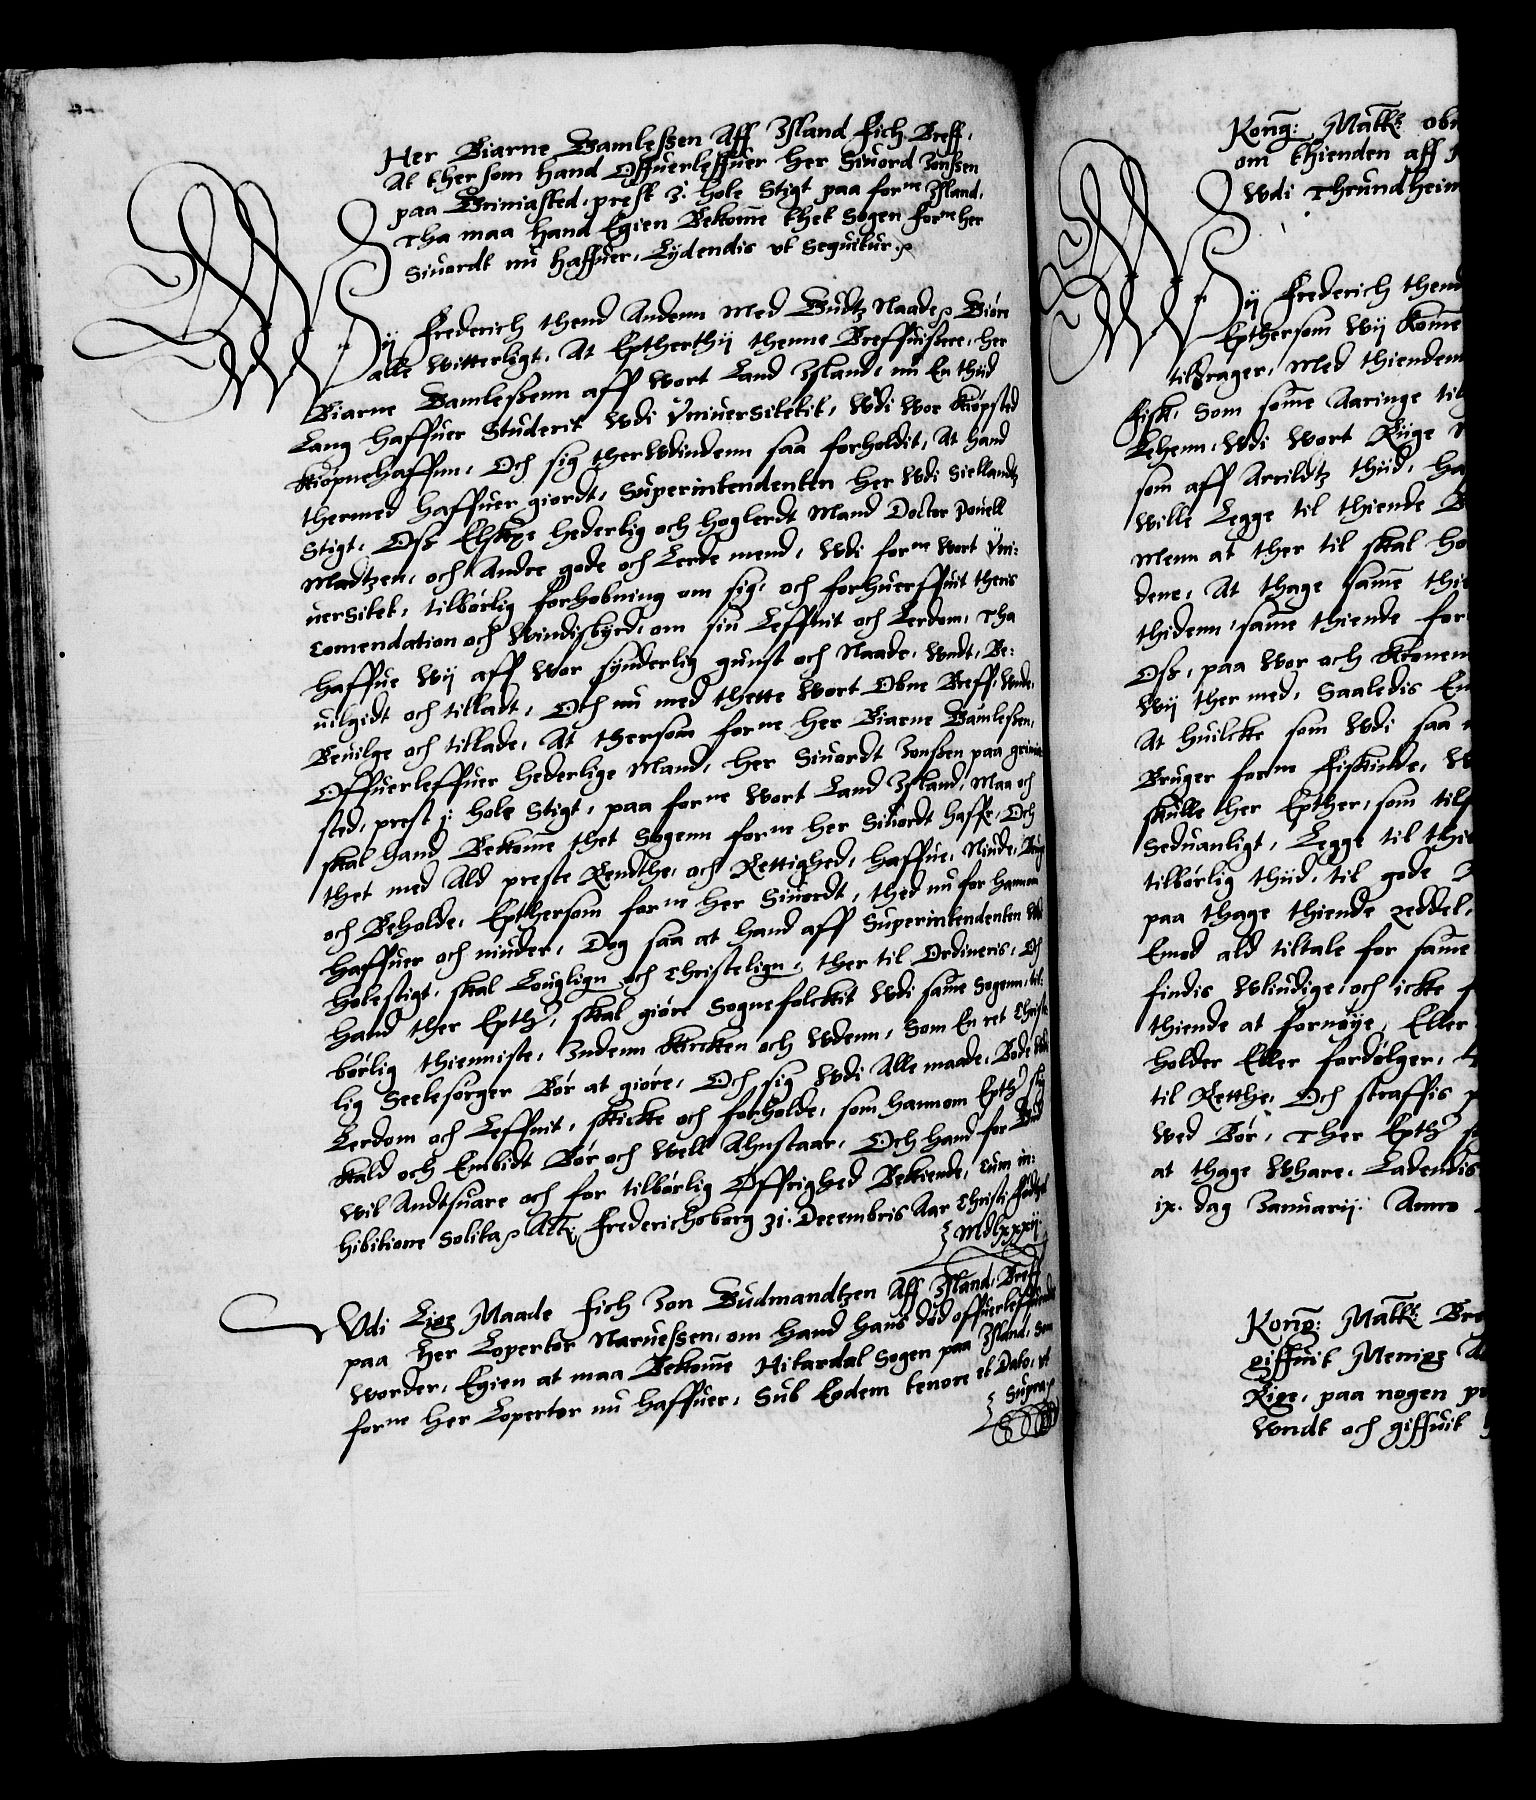 Her Biarne Gamlessen Aff Island fich Breff,
At ther som hand Offuerleffuer her Siuord Jonssen
paa Grimasted, prest J. hole Stigt paa forne Island,
Tha maa hand Egien Bekome thet Sogen forne her
Siuordt nu haffuer, Lydendis vt Sequitur.
Wy Frederich thend Anden Med Gudtz Naade Giøre
alle Witterligt, At Eptherthij thenne Breffuisere, her
Biarne Gamlessenn aff Wort Land Island, nu En thiid
Lang haffuer Studerit Wdi Vniuersitetit, Wdi Wor Kiøpsted
Kiøpnehaffnn, Och sig therWdindenn saa forholdit, At hand
thermed haffuer giordt, Superintendenten her Wdi Siellandtz
Stigt, Oss Elskelige hederlig och Høglerdt Mand Doctor Pouell
Madtzen, och Andre gode och Lerde mend, Wdi forne Wort Vni:
uersitet, tilbørlig forhobning om sig, och forhuerffuit theris
Comendation och Windisbyrd, om sin Leffnit och Lerdom, Tha
haffue Wij aff Wor synderlig gunst och Naade, Wndt, Be:
uilgidt och tilladt, Och nu med thette Wort Obne Breff, Wnde,
Beuilge och tillade, At thersom forne her Biarne Gamlessen,
Offuerleffuer hederlige Mand, her Siuordt Jonssen paa grima
sted, prest j: hole Stigt, paa forne Wort Land Island, Maa och
skal hand Bekome thet Sogenn forne her Siuordt haffr, Och
thet med Ald preste Rendthe, och Rettighed, haffue, Niude, Bruge
och Beholde, Epthersom forne her Siuordt, thed nu for hannom
haffuer och niuder, Dog saa at hand aff Superintendenten Wdi
holestigt, skal Louglign och Christelign, ther til Ordineris, Och
hand ther Epther, skal giøre Sognefolckit Wdi same Sogenn, til:
børlig thienniste, Indenn Kircken och Wdenn, Som En ret Christe
lig Seelesørger Bør at giøre, Och sig Wdi Alle maade, Bode Wdi
Lerdom och Leffnit, skicke och forholde, som hannom Epther sig
Kald och Embidt Bør och Well Anstaar, Och hand for Gud
wil Andtsuare och for tilbørlig Øffrighed Bekiende, Cum in:
hibitione Solita Actum Frederichsborg 31. Decembris Aar Christi fødtzel
Mdlxxxij.
Vdi Lige Maade fich Jon Gudmandtzen Aff Island, Breff
paa her Lopertor Naruessen, om hand hans død offuerleffuendis
Worder, Egien at maa Bekome Hitardal Sogen paa Island, Som
forne her Lopertor nu haffuer, Sub Eodem tenore et Dato, vt
Supra
Kong: Matts obn
om thienden aff
Wdi Thrundheim
Wy Frederich thend
Epthersom Wij kome
tildrager, Med thiendenn
Fisk, Som some Aaringe til
Lehenn, Wdi Wort Riige N
som aff Arrildtz thiid, ha
Wille Legge til thiende B
Menn at ther til skal ho
dene, At thage same thie
thidenn, same thiende for
Oss, paa Wor och Kronen
Wij ther med, Saaledis En
At huilcke som Wdi saa
Bruger forne Fiskinde, W
skulle her Epther, som til
Seduanligt, Legge til thie
tilbørlig thiid, til gode
paa thage thiende zeddel,
Emod ald tiltale for same
findis Wlindige, och icke
thiende at fornøye, Eller
holder Eller fordølger,
til Retthe, Och straffis
Wed Bør, Ther Epther
at thage Whare, Ladendis
ix. dag Januarij. Anno
Kong: Matts: Bre
giffuit Menige
Rige, paa nogen
Wndt och giffuit